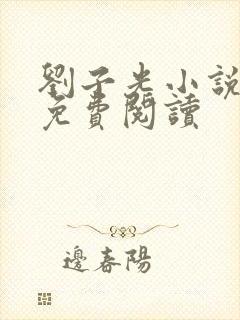 劉子光小說
免費閱讀
邊春陽